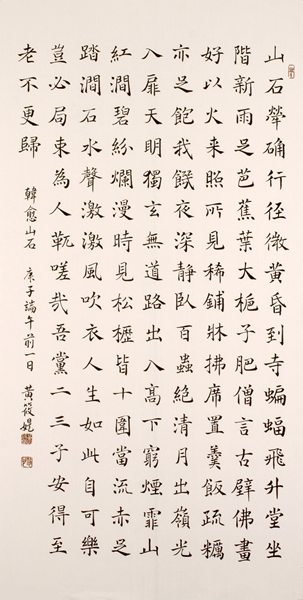 山石犖确行徑微黃昏到寺蝙蝠飛升堂坐
階新雨足芭蕉葉大梔子肥僧言古壁佛畫
好以火來照所見稀鋪牀拂席置羹飯疏糲
亦足飽我饑夜深靜臥百蟲絕清月出嶺光
入扉天明獨去無道路出入高下窮煙霏山
紅澗碧紛爛漫時見松櫪皆十圍當流赤足
踏澗石水聲激激風吹衣人生如此自可樂
豈必局束為人鞿嗟哉吾黨二三子安得至
老不更歸
韓愈山石 庚子端午前一日 黃筱